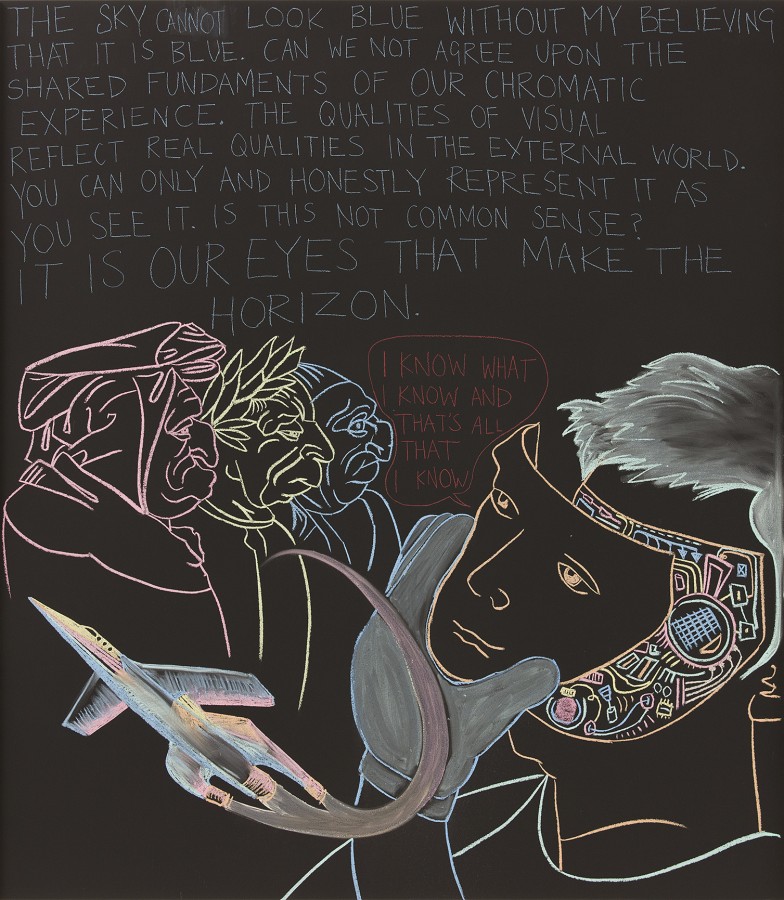 THE SKY CANNOT LOOK BLUE WITHOUT MY BELIEVING
THAT IT IS BLUE. CAN WE NOT AGREE UPON THE
SHARED FUNDAMENTS OF OUR CHROMATIC
EXPERIENCE. THE QUALITIES OF VISUAL
REFLECT REAL QUALITIES IN THE EXTERNAL WORLD.
YOU CAN ONLY AND HONESTLY REPRESENT IT AS
YOU SEE IT. IS THIS NOT COMMON SENSE?
IT IS OUR EYES THAT MAKE THE
HORIZON.
I KNOW WHAT
I KNOW AND
THAT'S ALL
THAT
I KNOW